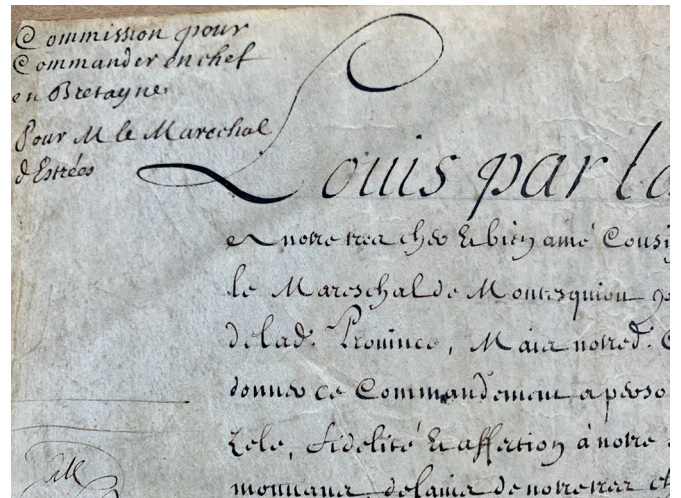 Commission pour
Commander en chef
en Bretagne
Pour M le Marechal
d'Estrées
Louis par la
A notre tres cher et bien amé Cousi
le Mareschal de Montesquiou
de lad. Province, Mais notred.
donner ce Commandement a perso
Zele, fidelité et affection à notre
moyens, de l'avis de notre tres